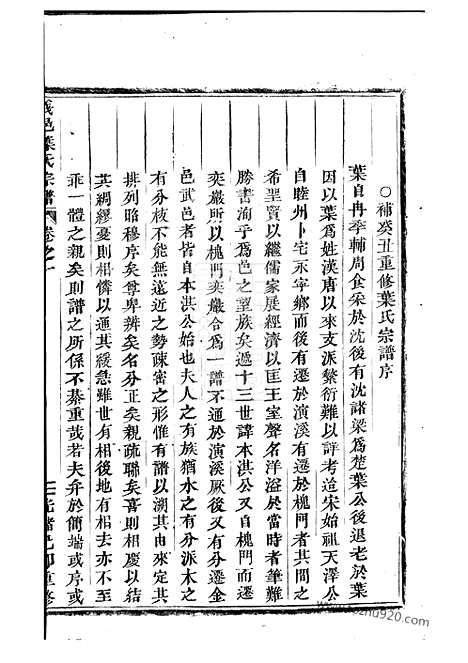 ○補癸丑重修葉氏宗譜序
葉自冉季輔周食采於沈後有沈諸梁爲楚葉公後退老於葉
因以葉爲姓漢唐以來支派繁衍難以詳考迨宋始祖天澤公
自睦州卜宅永寧鄉而後有遷於演溪有遷於槐門者其間之
希聖賢以繼儒家展經濟以匡王室聲名洋溢於當時者筆難
勝書洵乎爲邑之望族矣遞十三世諱本洪公又自槐門而遷
奕嚴所以槐門奕嚴合爲一譜不通於演溪厥後又有分遷金
邑武邑者皆自本洪公始也夫人之有族猶水之有分派木之
有分枝不能無遠近之勢疎密之形惟有譜以溯其由來定其
排列昭穆序矣尊卑辨矣名分正矣親疏聯矣喜則相慶以結
其綢繆憂則相憐以通其緩急雖世有相後地有相去亦不至
乖一體之親矣則譜之所係不綦重哉若夫弁於簡端或序或
邑葉氏宗譜
卷之一
光緒己卯重修